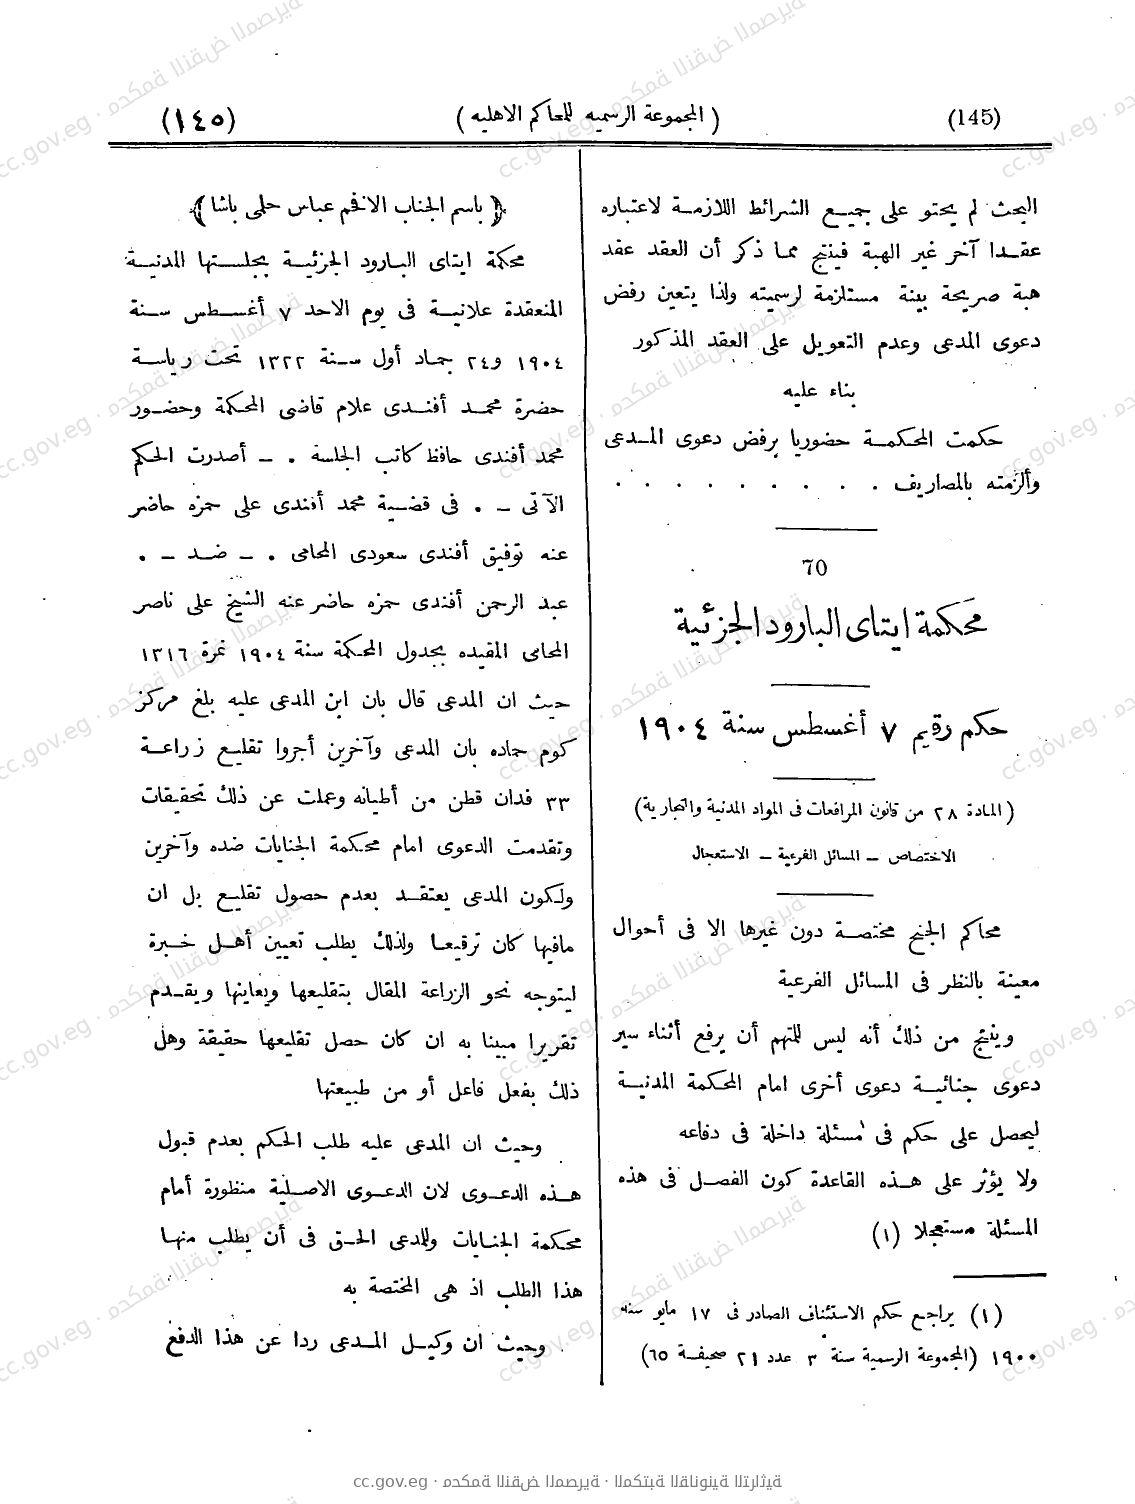 (145)
( المجموعة الرسميه للمحاكم الاهليه )
(١٤٥)
البحث لم يحتو على جميع الشرائط اللازمة لاعتباره
عقدا آخر غير الهبة فينتج مما ذكر أن العقد عقد
هبة صريحة بينة مستلزمة لرسميته ولذا يتعين رفض
دعوى المدعى وعدم التعويل على العقد المذكور
بناء عليه
حكمت المحكمة حضوريا برفض دعوى المدعى
وألزمته بالمصاريف . . . . . . . . .
70
محكمة ايتاى البارود الجزئية
حكم رقيم ٧ أغسطس سنة ١٩٠٤
( المادة ٢٨ من قانون المرافعات فى المواد المدنية والتجارية)
الاختصاص – المسائل الفرعية – الاستعجال
محاكم الجنح مختصة دون غيرها الا فى أحوال
معينة بالنظر فى المسائل الفرعية
وينتج من ذلك أنه ليس للمتهم أن يرفع أثناء سير
دعوى جنائية دعوى أخرى امام المحكمة المدنية
ليحصل على حكم فى مسئلة داخلة فى دفاعه
ولا يؤثر على هذه القاعدة كون الفصل فى هذه
المسئلة مستعجلا (١)
(١) يراجع حكم الاستئناف الصادر فى ١٧ مايو سنة
١٩٠٠ (المجموعة الرسمية سنة ٣ عدد ٢١ صحيفة ٦٥)
﴿ باسم الجناب الافخم عباس حلمى باشا ﴾
محكمة ايتاى البارود الجزئية بجلستها المدنية
المنعقدة علانية فى يوم الاحد ٧ أغسطس سنة
١٩٠٤ و٢٤ جماد أول سنة ١٣٢٢ تحت رياسة
حضرة محمد أفندى علام قاضى المحكمة وحضور
محمد أفندى حافظ كاتب الجلسة . – أصدرت الحكم
الآتى – . فى قضية محمد أفندى على حمزه حاضر
عنه توفيق أفندى سعودى المحامى . – ضد – .
عبد الرحمن أفندى حمزه حاضر عنه الشيخ على ناصر
المحامى المقيده بجدول المحكمة سنة ١٩٠٤ نمرة ١٣١٦
حيث ان المدعى قال بان ابن المدعى عليه بلغ مركز
كوم حماده بان المدعى وآخرين أجروا تقليع زراعة
٣٣ فدان قطن من أطيانه وعملت عن ذلك تحقيقات
وتقدمت الدعوى امام محكمة الجنايات ضده وآخرين
ولكون المدعى يعتقد بعدم حصول تقليع بل ان
مافيها كان ترقيعا ولذلك يطلب تعيين أهل خبرة
ليتوجه نحو الزراعة المقال بتقليعها ويعاينها ويقدم
تقريرا مبينا به ان كان حصل تقليعها حقيقة وهل
ذلك بفعل فاعل أو من طبيعتها
وحيث ان المدعى عليه طلب الحكم بعدم قبول
هذه الدعوى لان الدعوى الاصلية منظورة أمام
محكمة الجنايات وللمدعى الحق فى أن يطلب منها
هذا الطلب اذ هى المختصة به
وحيث ان وكيل المدعى ردا عن هذا الدفع
cc.gov.eg · محكمة النقض المصرية · المكتبة القانونية التراثية